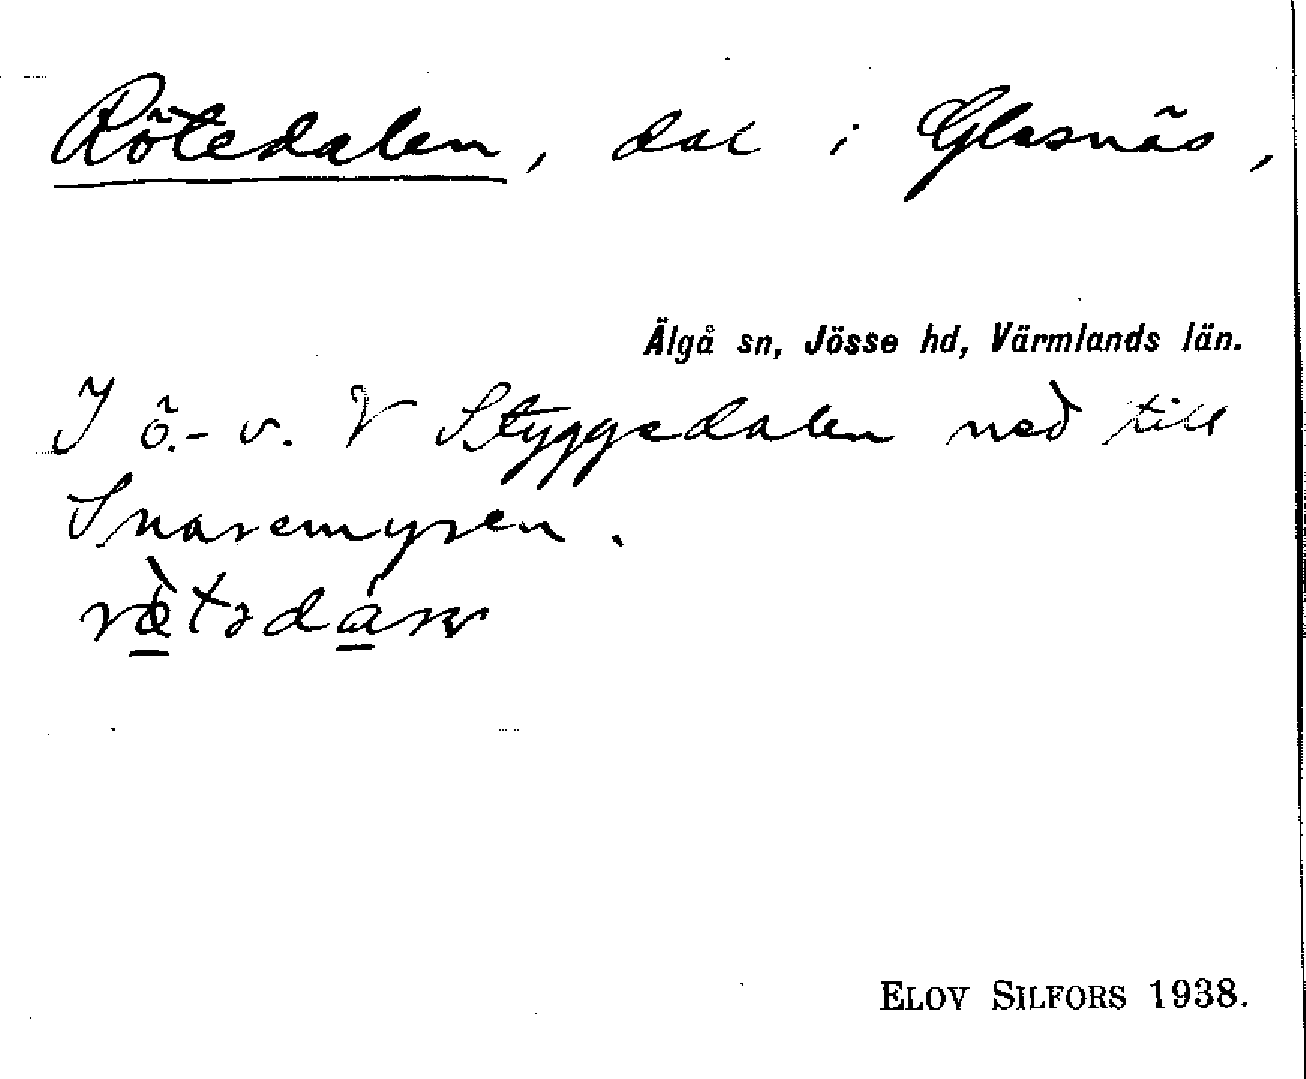 Rötedalen, dal i Glasnäs,
Älgå sn, Jösse hd, Värmlands län.
I ö.-v. V Styggedalen ned till
Snaremyren.
ELOV SILFORS 1938.